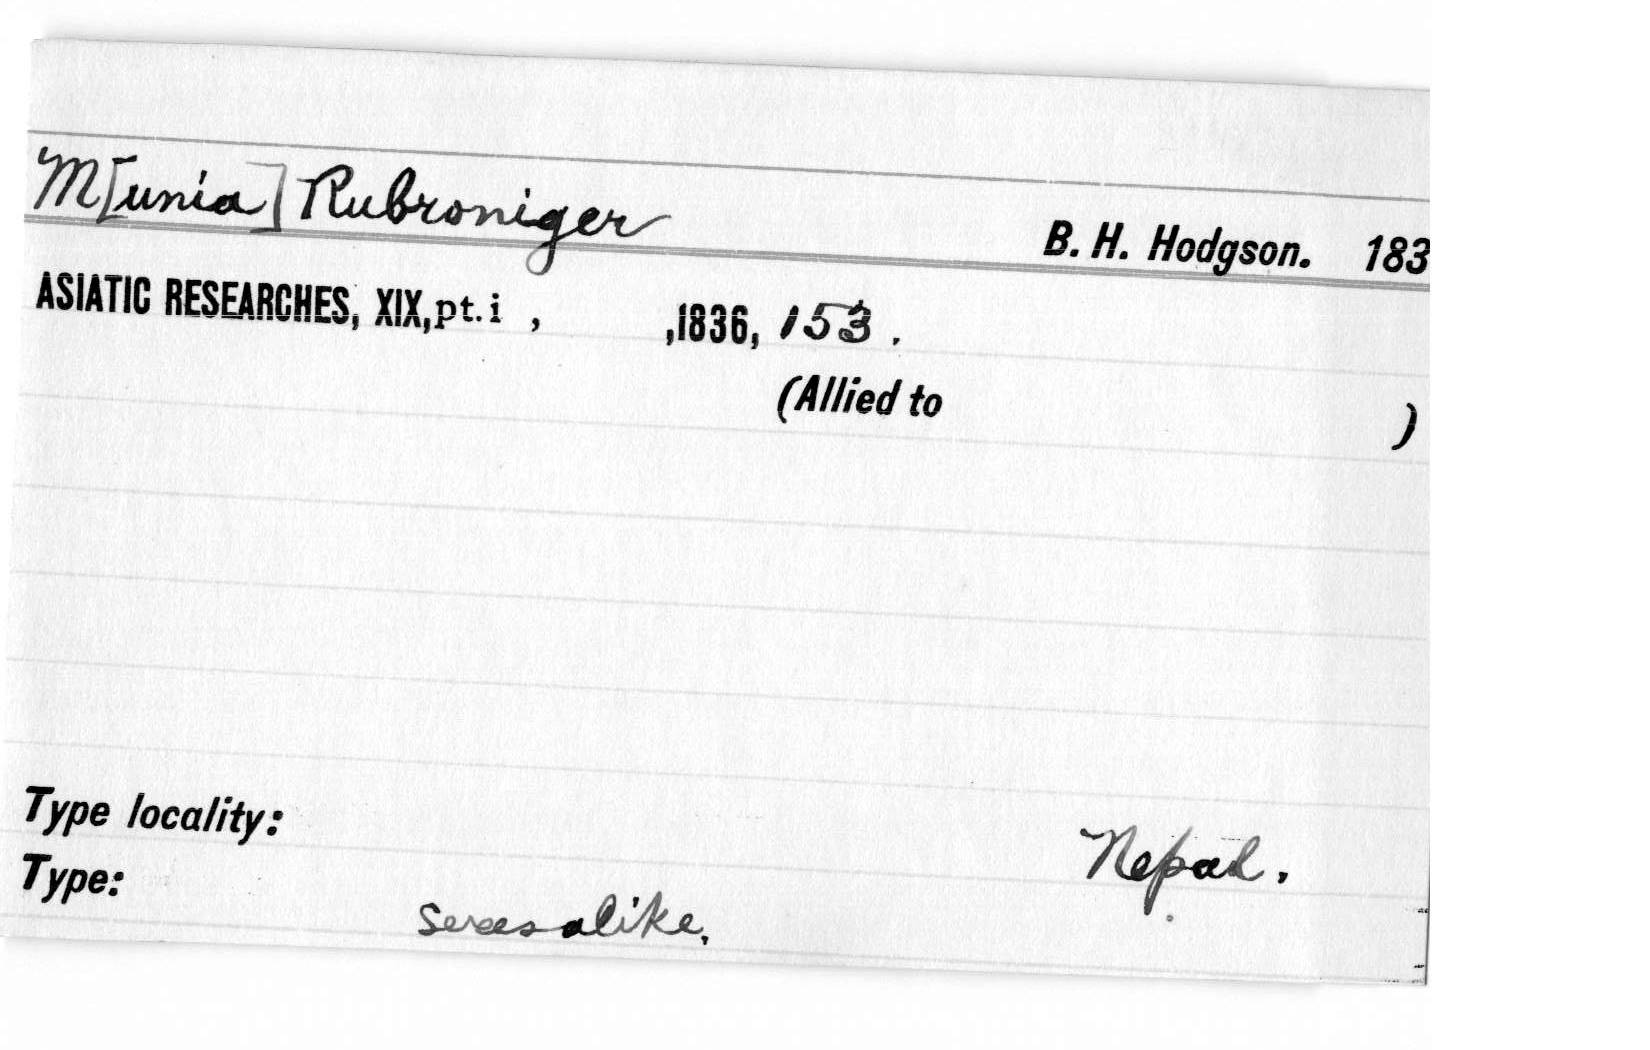 M[unia] Rubroniger
B. H. Hodgson. 183
ASIATIC RESEARCHES, XIX, pt. i , ,1836, 153 .
(Allied to )
Type locality: Nepal.
Type:
sexes alike.